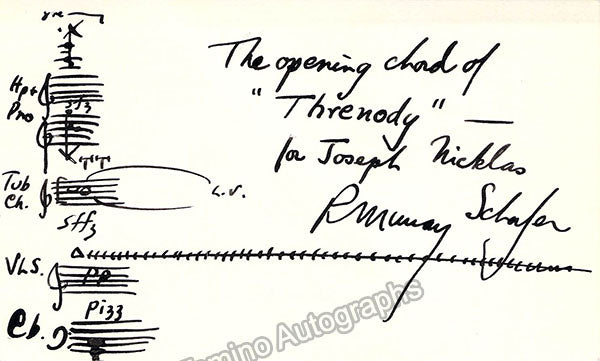 8va
The opening chord of
"Threnody" —
for Joseph Nicklas
R Murray Schafer
Hp+
Pno
sffz
Tub
Ch.
L.V.
sffz
VLS.
pp
pizz
Cb.
Tamino Autographs